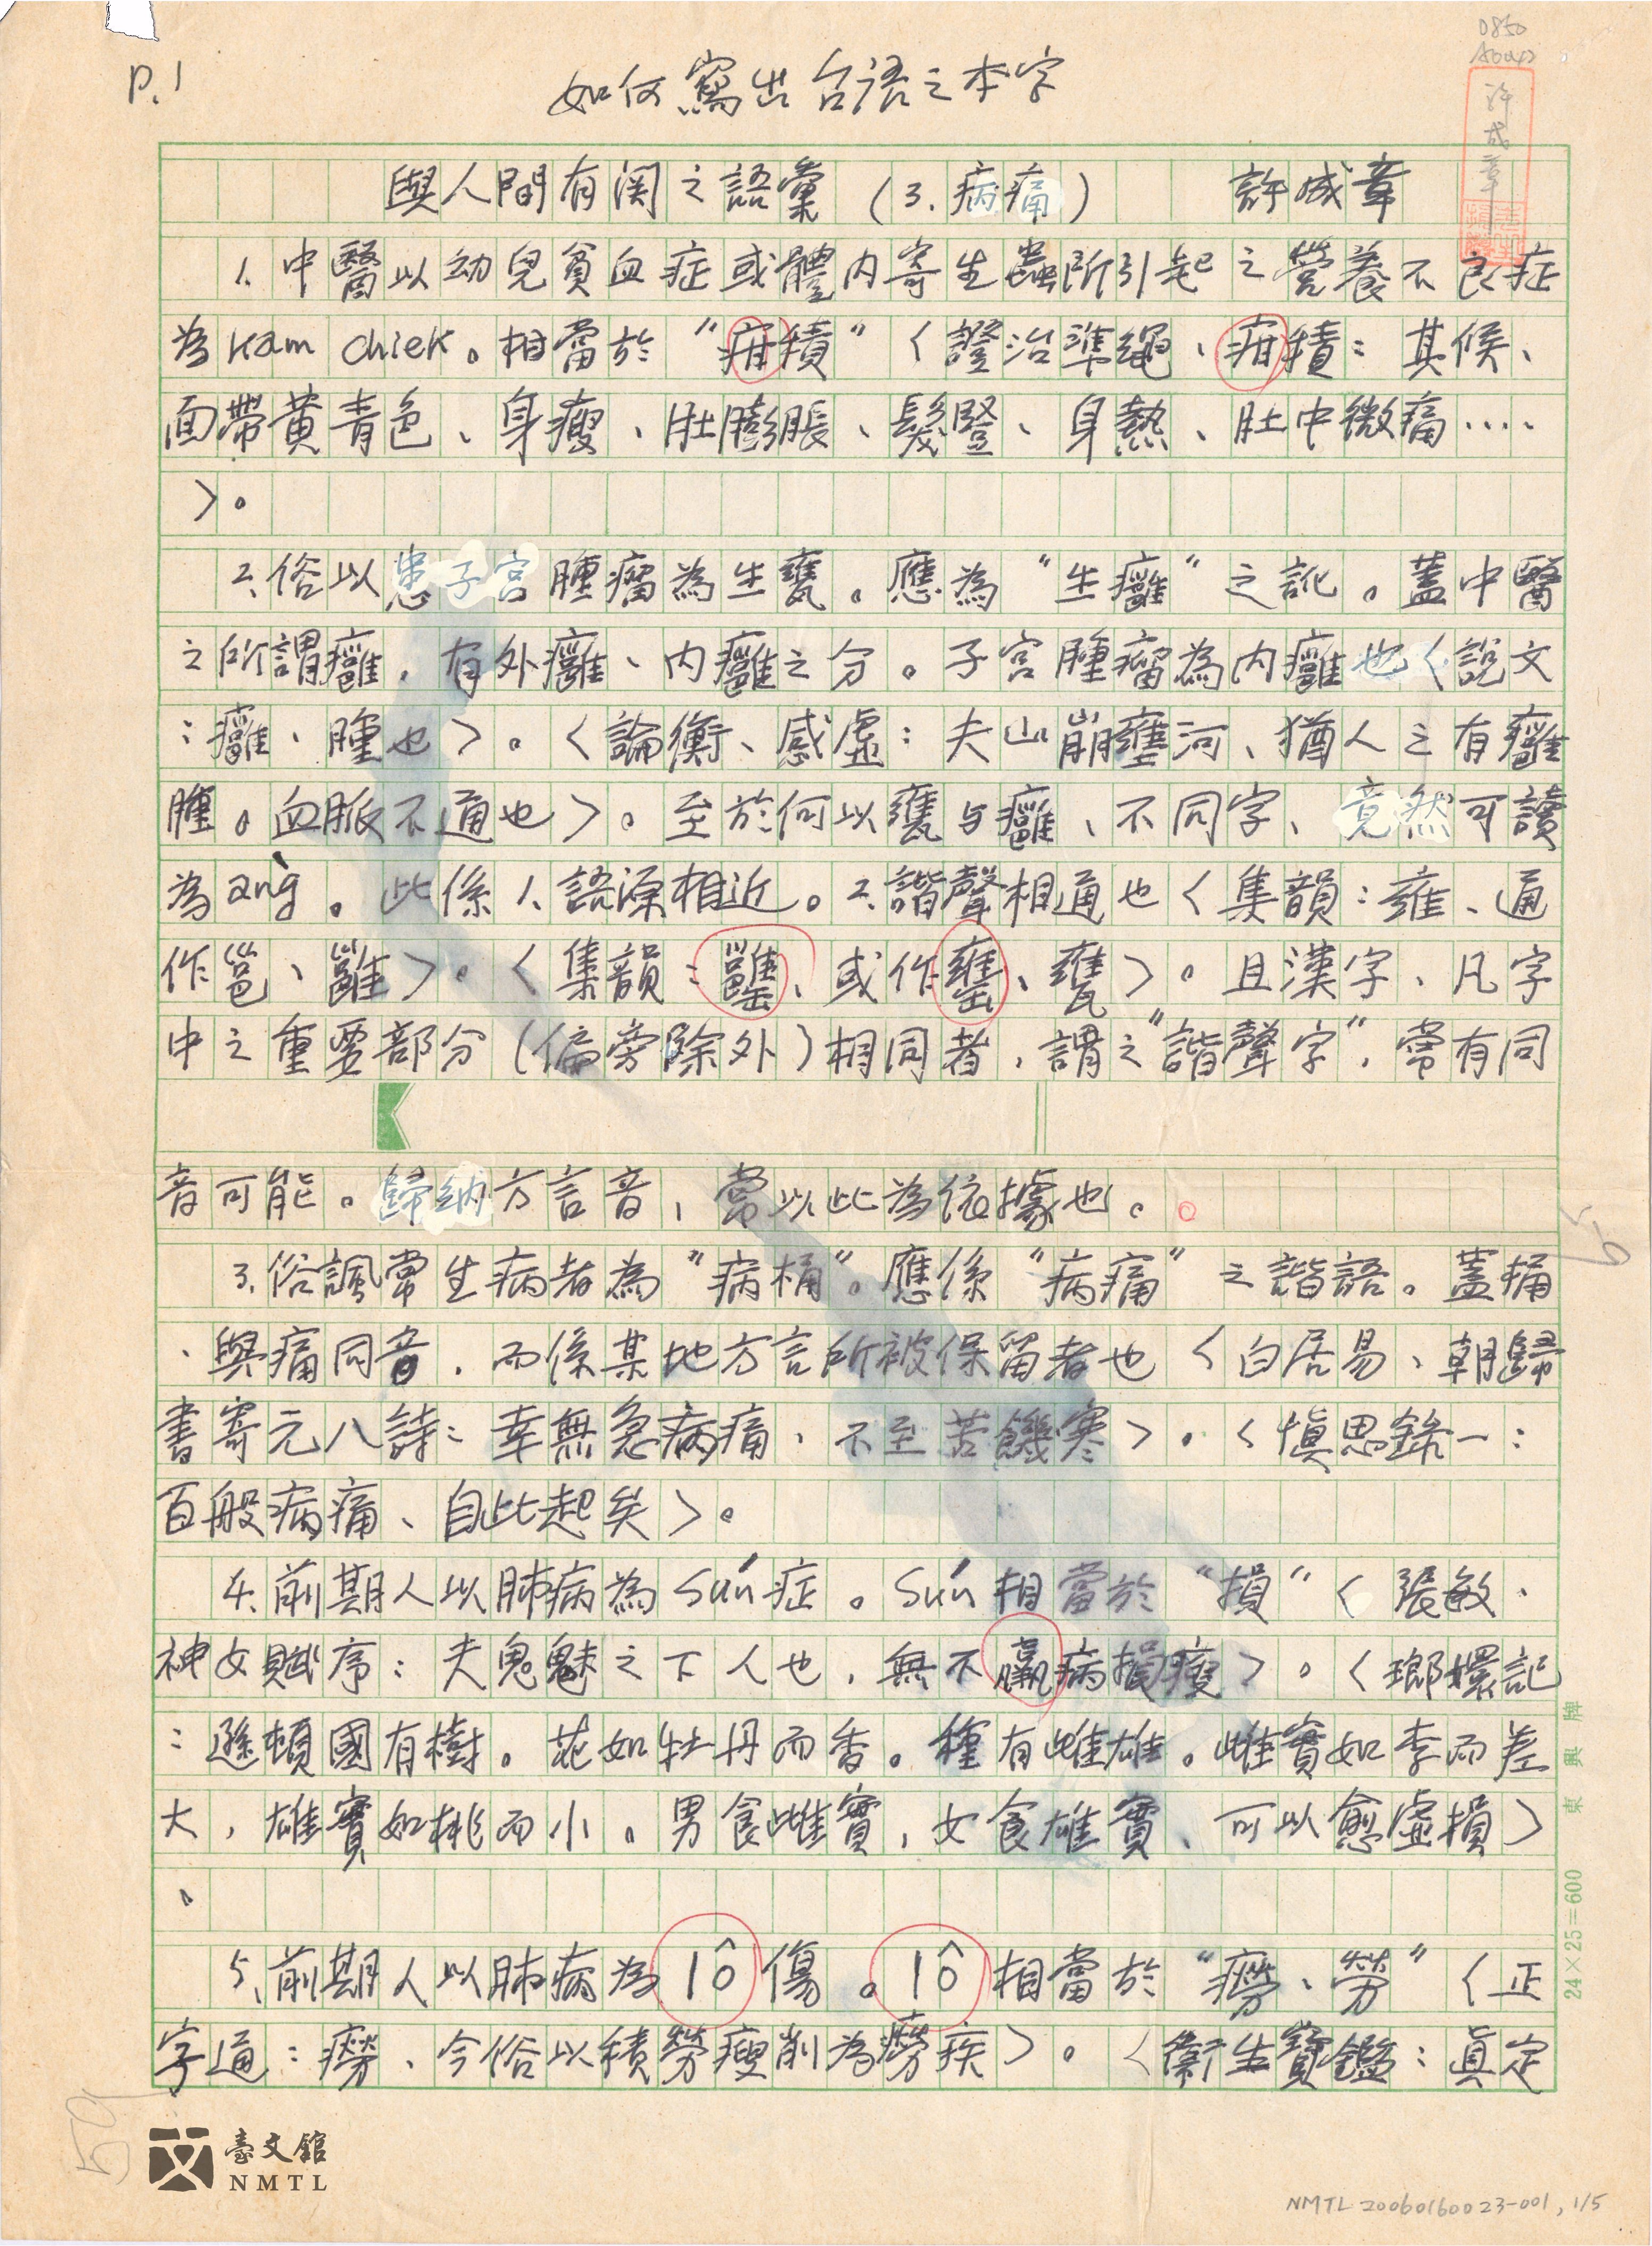 P.1
如何寫出台語之本字
與人間有関之語彙(3.病痛) 許成章
1.中醫以幼兒貧血症或體內寄生蟲所引起之營養不良症
為kam chiek。相當於"疳積"〈證治準繩、疳積:其候、
面帶黃青色、身瘦、肚膨脹、髮豎、身熱、肚中微痛....
〉。
2.俗以患子宮腫瘤為生甕。應為"生癰"之訛。蓋中醫
之所謂癰,有外癰、內癰之分。子宮腫瘤為內癰也〈說文
:癰、腫也〉。〈論衡、感虛:夫山崩壅河、猶人之有癰
腫。血脈不通也〉。至於何以甕与癰、不同字、竟然可讀
為àng。此係1.語源相近。2.諧聲相通也〈集韻:雍、通
作邕、雝〉。〈集韻:罋、或作罋、甕〉。且漢字、凡字
中之重要部分(偏旁除外)相同者,謂之"諧聲字",常有同
音可能。歸納方言音,當以此為依據也。
3.俗諷常生病者為"病桶"。應係"病痛"之諧語。蓋桶
、與痛同音,而係某地方言所被保留者也〈白居易、朝歸
書寄元八詩:幸無急病痛、不至苦饑寒〉。〈慎思錄一:
百般病痛、自此起矣〉。
4.前期人以肺病為sún症。sún相當於"損"〈張敏、
神女賦序:夫鬼魅之下人也,無不羸病損瘦〉。〈瑯嬛記
:遜頓國有樹。花如牡丹而香。種有雌雄。雌實如李而差
大,雄實如桃而小。男食雌實,女食雄實、可以愈虛損〉
。
5.前期人以肺病為lô傷。lô相當於"癆、勞"〈正
字通:癆、今俗以積勞瘦削為癆疾〉。〈衛生寶鑑:真定
24×25=600 東興牌
許成章
59
臺文館
NMTL
NMTL 20060160023-001, 1/5